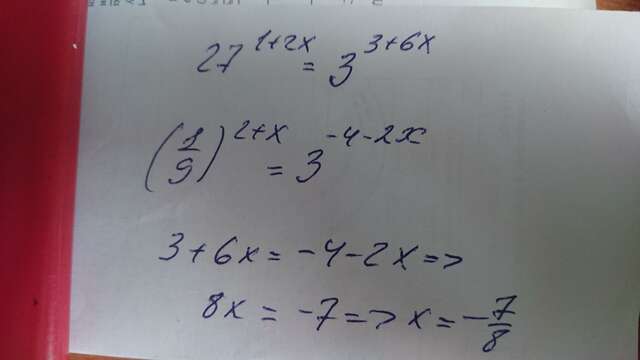 27^{1+2x} = 3^{3+6x}
(1/9)^{2+x} = 3^{-4-2x}
3+6x = -4-2x =>
8x = -7 => x = -7/8